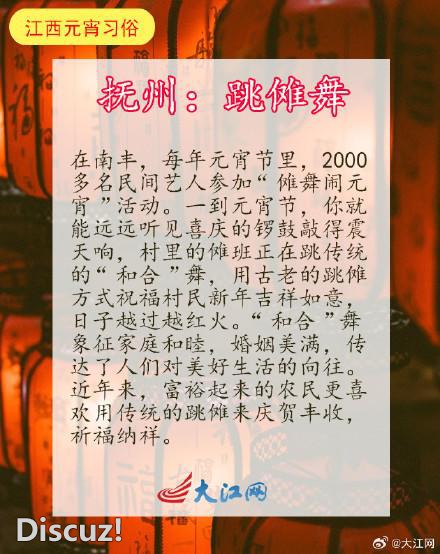 江西元宵习俗
抚州：跳傩舞
在南丰，每年元宵节里，2000
多名民间艺人参加“傩舞闹元
宵”活动。一到元宵节，你就
能远远听见喜庆的锣鼓敲得震
天响，村里的傩班正在跳传统
的“和合”舞，用古老的跳傩
方式祝福村民新年吉祥如意，
日子越过越红火。“和合”舞
象征家庭和睦，婚姻美满，传
达了人们对美好生活的向往。
近年来，富裕起来的农民更喜
欢用传统的跳傩来庆贺丰收，
祈福纳祥。
大江网
Discuz!
@大江网